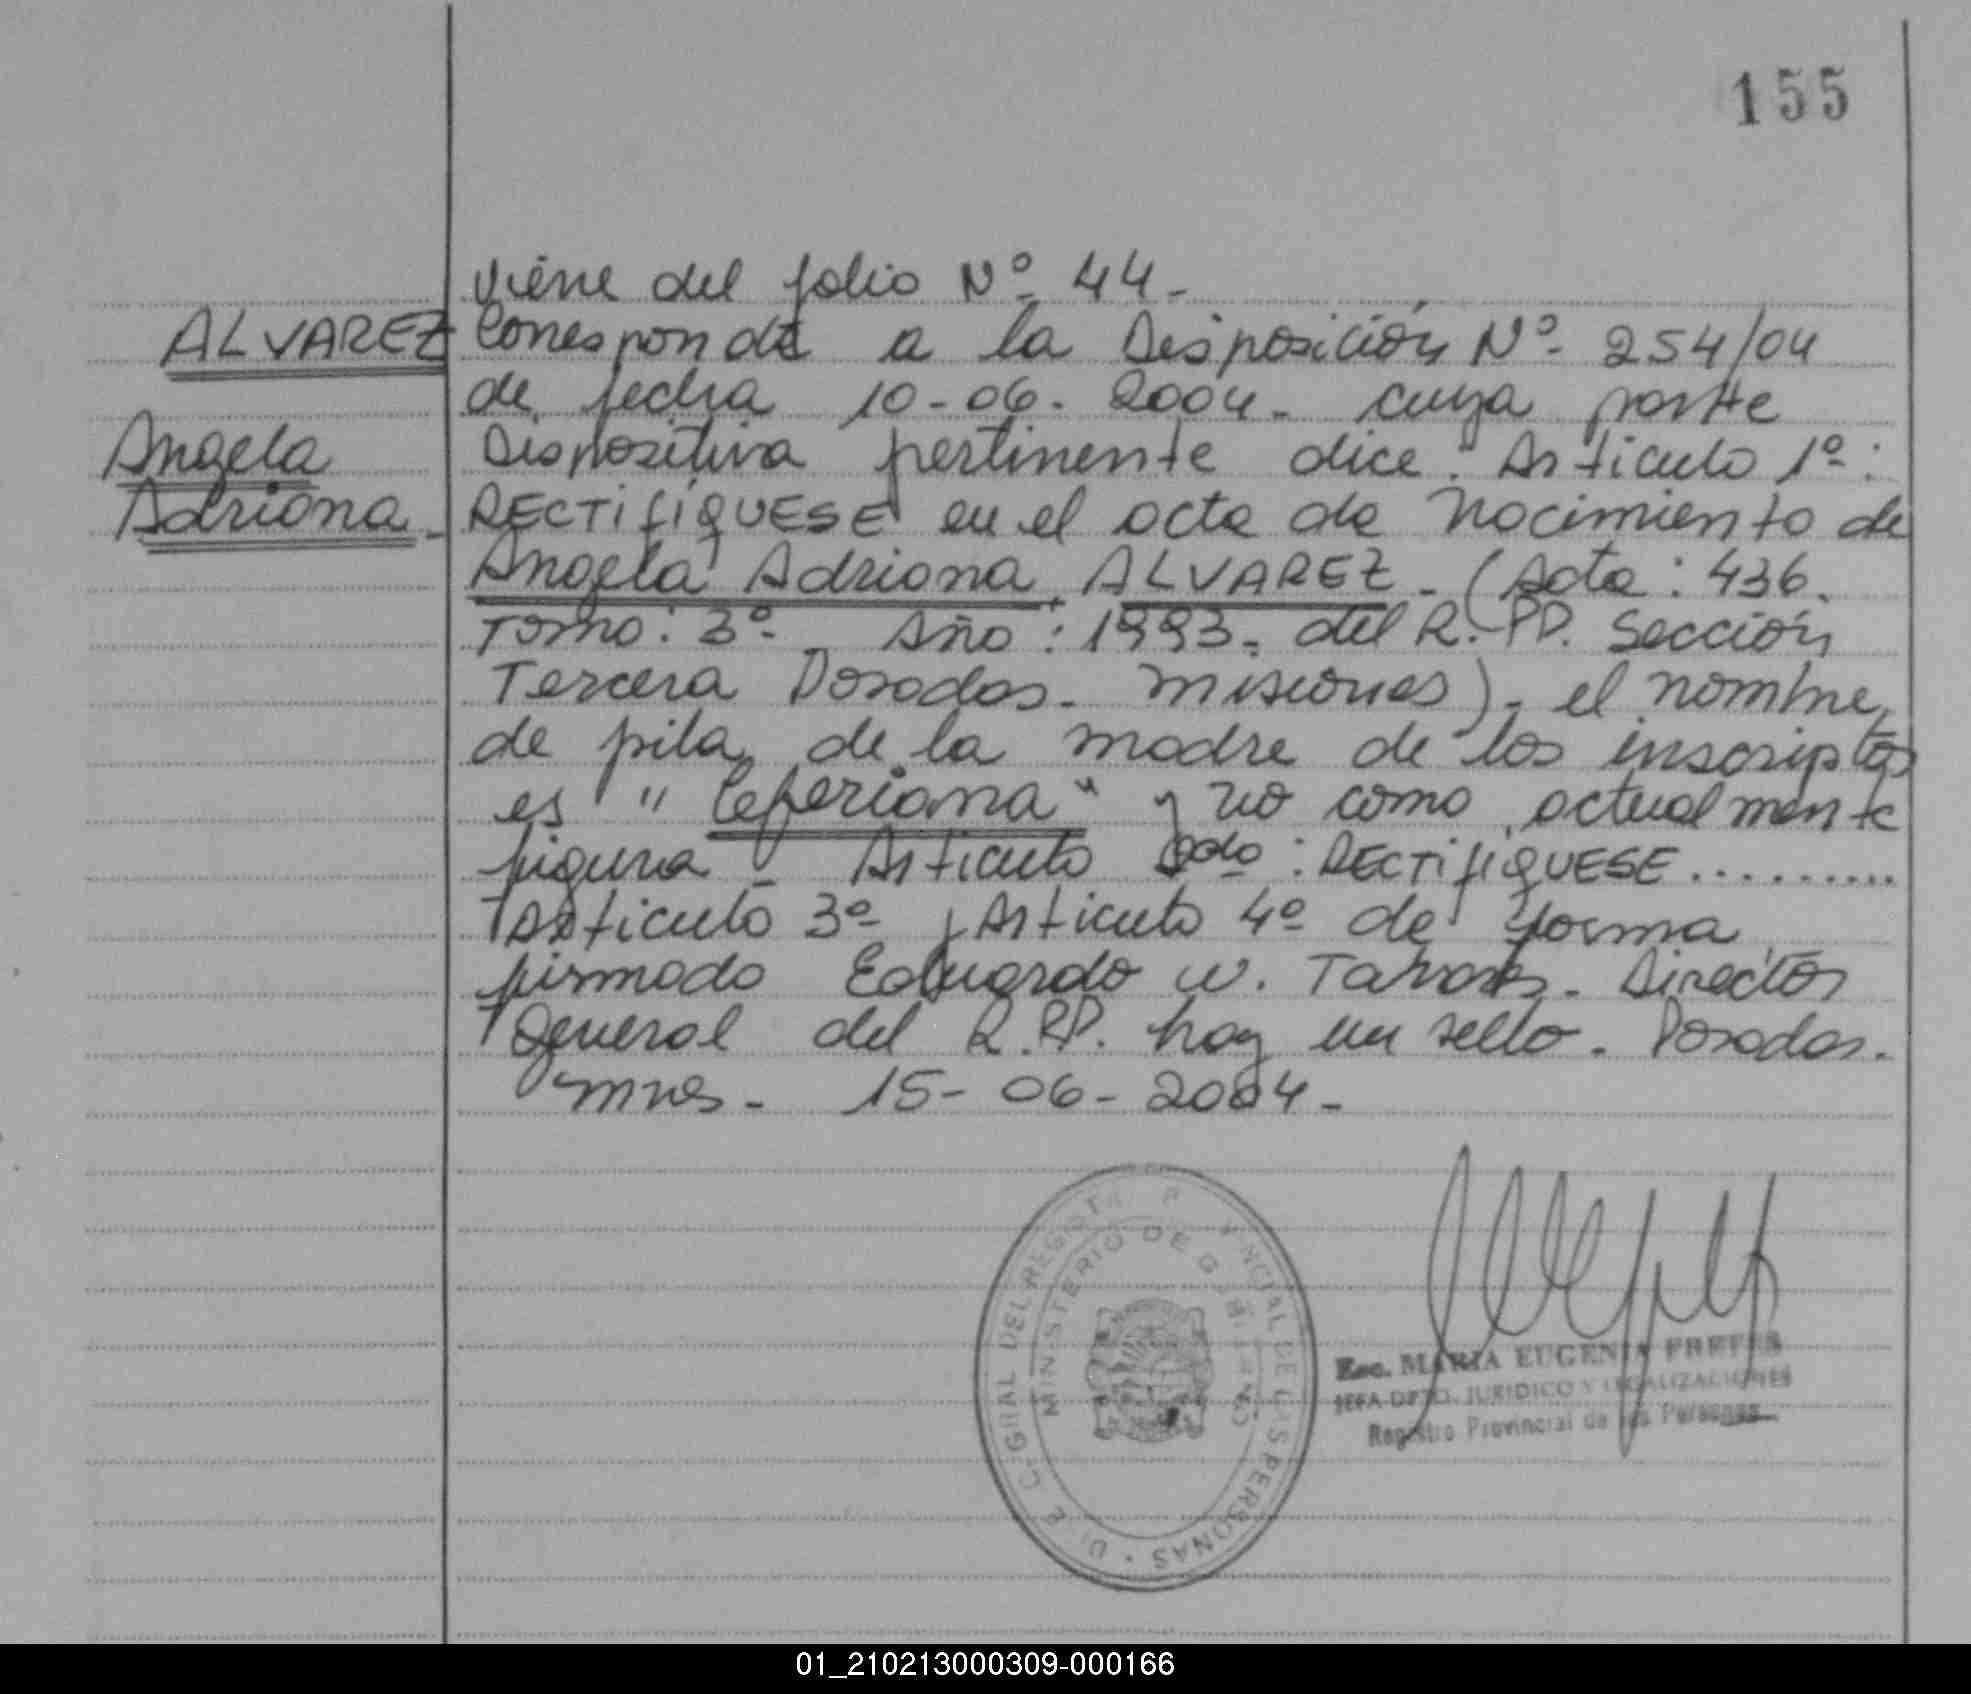 155
viene del folio Nº 44-
ALVAREZ
Corresponde a la Disposición Nº 254/04
de fecha 10-06-2004- cuya parte
Angela
Dispositiva pertinente dice: Articulo 1º:
Adriana-
RECTIFIQUESE en el acta de Nacimiento de
Angela Adriana ALVAREZ- (Acta: 436.
Tomo: 3º- Año: 1993- del R.PP. Sección
Tercera Posadas- Misiones)- el nombre
de pila de la madre de los inscriptos
es "Ceferiana" y no como actualmente
figura- Articulo 2do: RECTIFIQUESE..........
Articulo 3º y Articulo 4º de forma
firmado Eduardo W. Director
General del R.PP. hay un sello. Posadas.
Mnes- 15-06-2004-
MINISTERIO DE GOBIERNO
GRAL DEL REGISTR P VINCIAL DE LAS PERSONAS
Esc. MARIA EUGENIA
JEFA DPTO. JURIDICO Y LEGALIZACIONES
Registro Provincial de las Personas
01_210213000309-000166